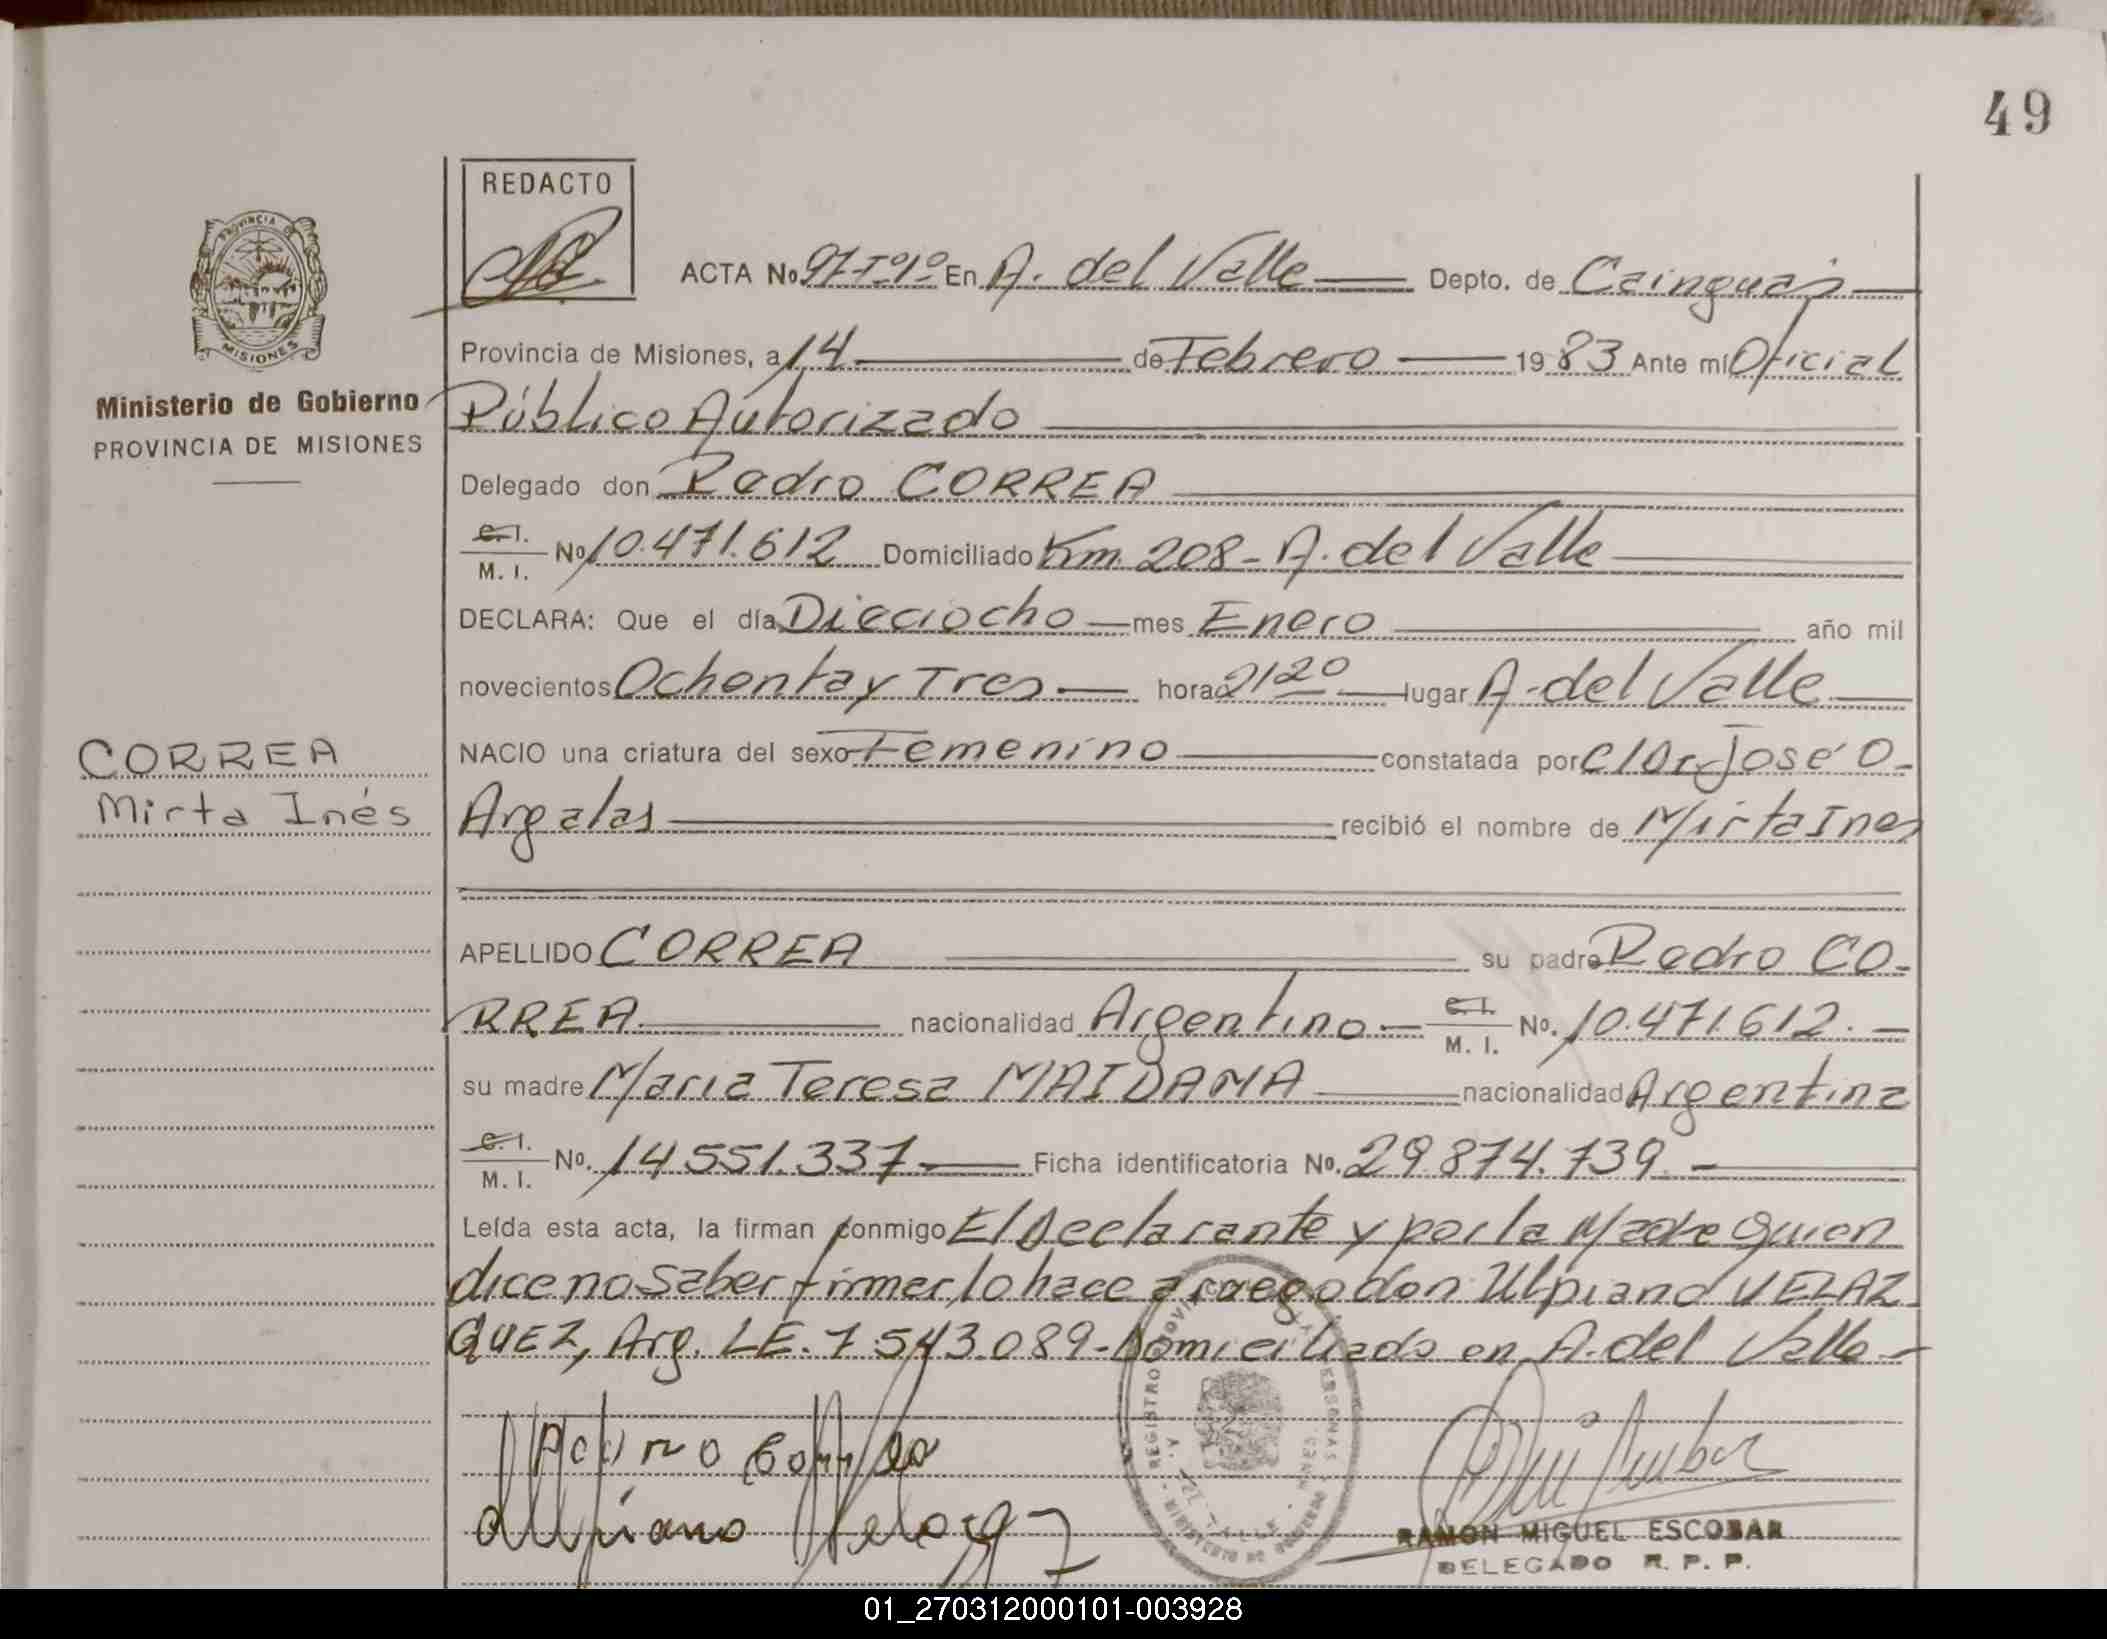 49
REDACTO
PROVINCIA DE
MISIONES
Ministerio de Gobierno
PROVINCIA DE MISIONES
ACTA No. 97-Tº1º En A. del Valle Depto. de Cainguás
Provincia de Misiones, a 14 de Febrero 1983 Ante mí Oficial
Público Autorizado
Delegado don Pedro CORREA
C. I.
M. I. No 10.471.612 Domiciliado Km. 208 - A. del Valle
DECLARA: Que el día Dieciocho mes Enero año mil
novecientos Ochenta y Tres hora 2120 lugar A. del Valle
NACIO una criatura del sexo Femenino constatada por el Dr. José O.
CORREA
Mirta Inés
Argalas recibió el nombre de Mirta Ines
APELLIDO CORREA su padre Pedro CO-
RREA nacionalidad Argentino C. I.
M. I. No. 10.471.612.
su madre Maria Teresa MAIDANA nacionalidad Argentina
C. I.
M. I. No. 14.551.337 Ficha identificatoria No. 29.874.739.
Leída esta acta, la firman conmigo El declarante y por la Madre quien
dice no saber firmar, lo hace a ruego don Ulpiano VELAZ
QUEZ, Arg. LE. 7.543.089 - Domiciliado en A. del Valle
Correa
Ulpiano
RAMON MIGUEL ESCOBAR
DELEGADO R. P. P.
01_270312000101-003928